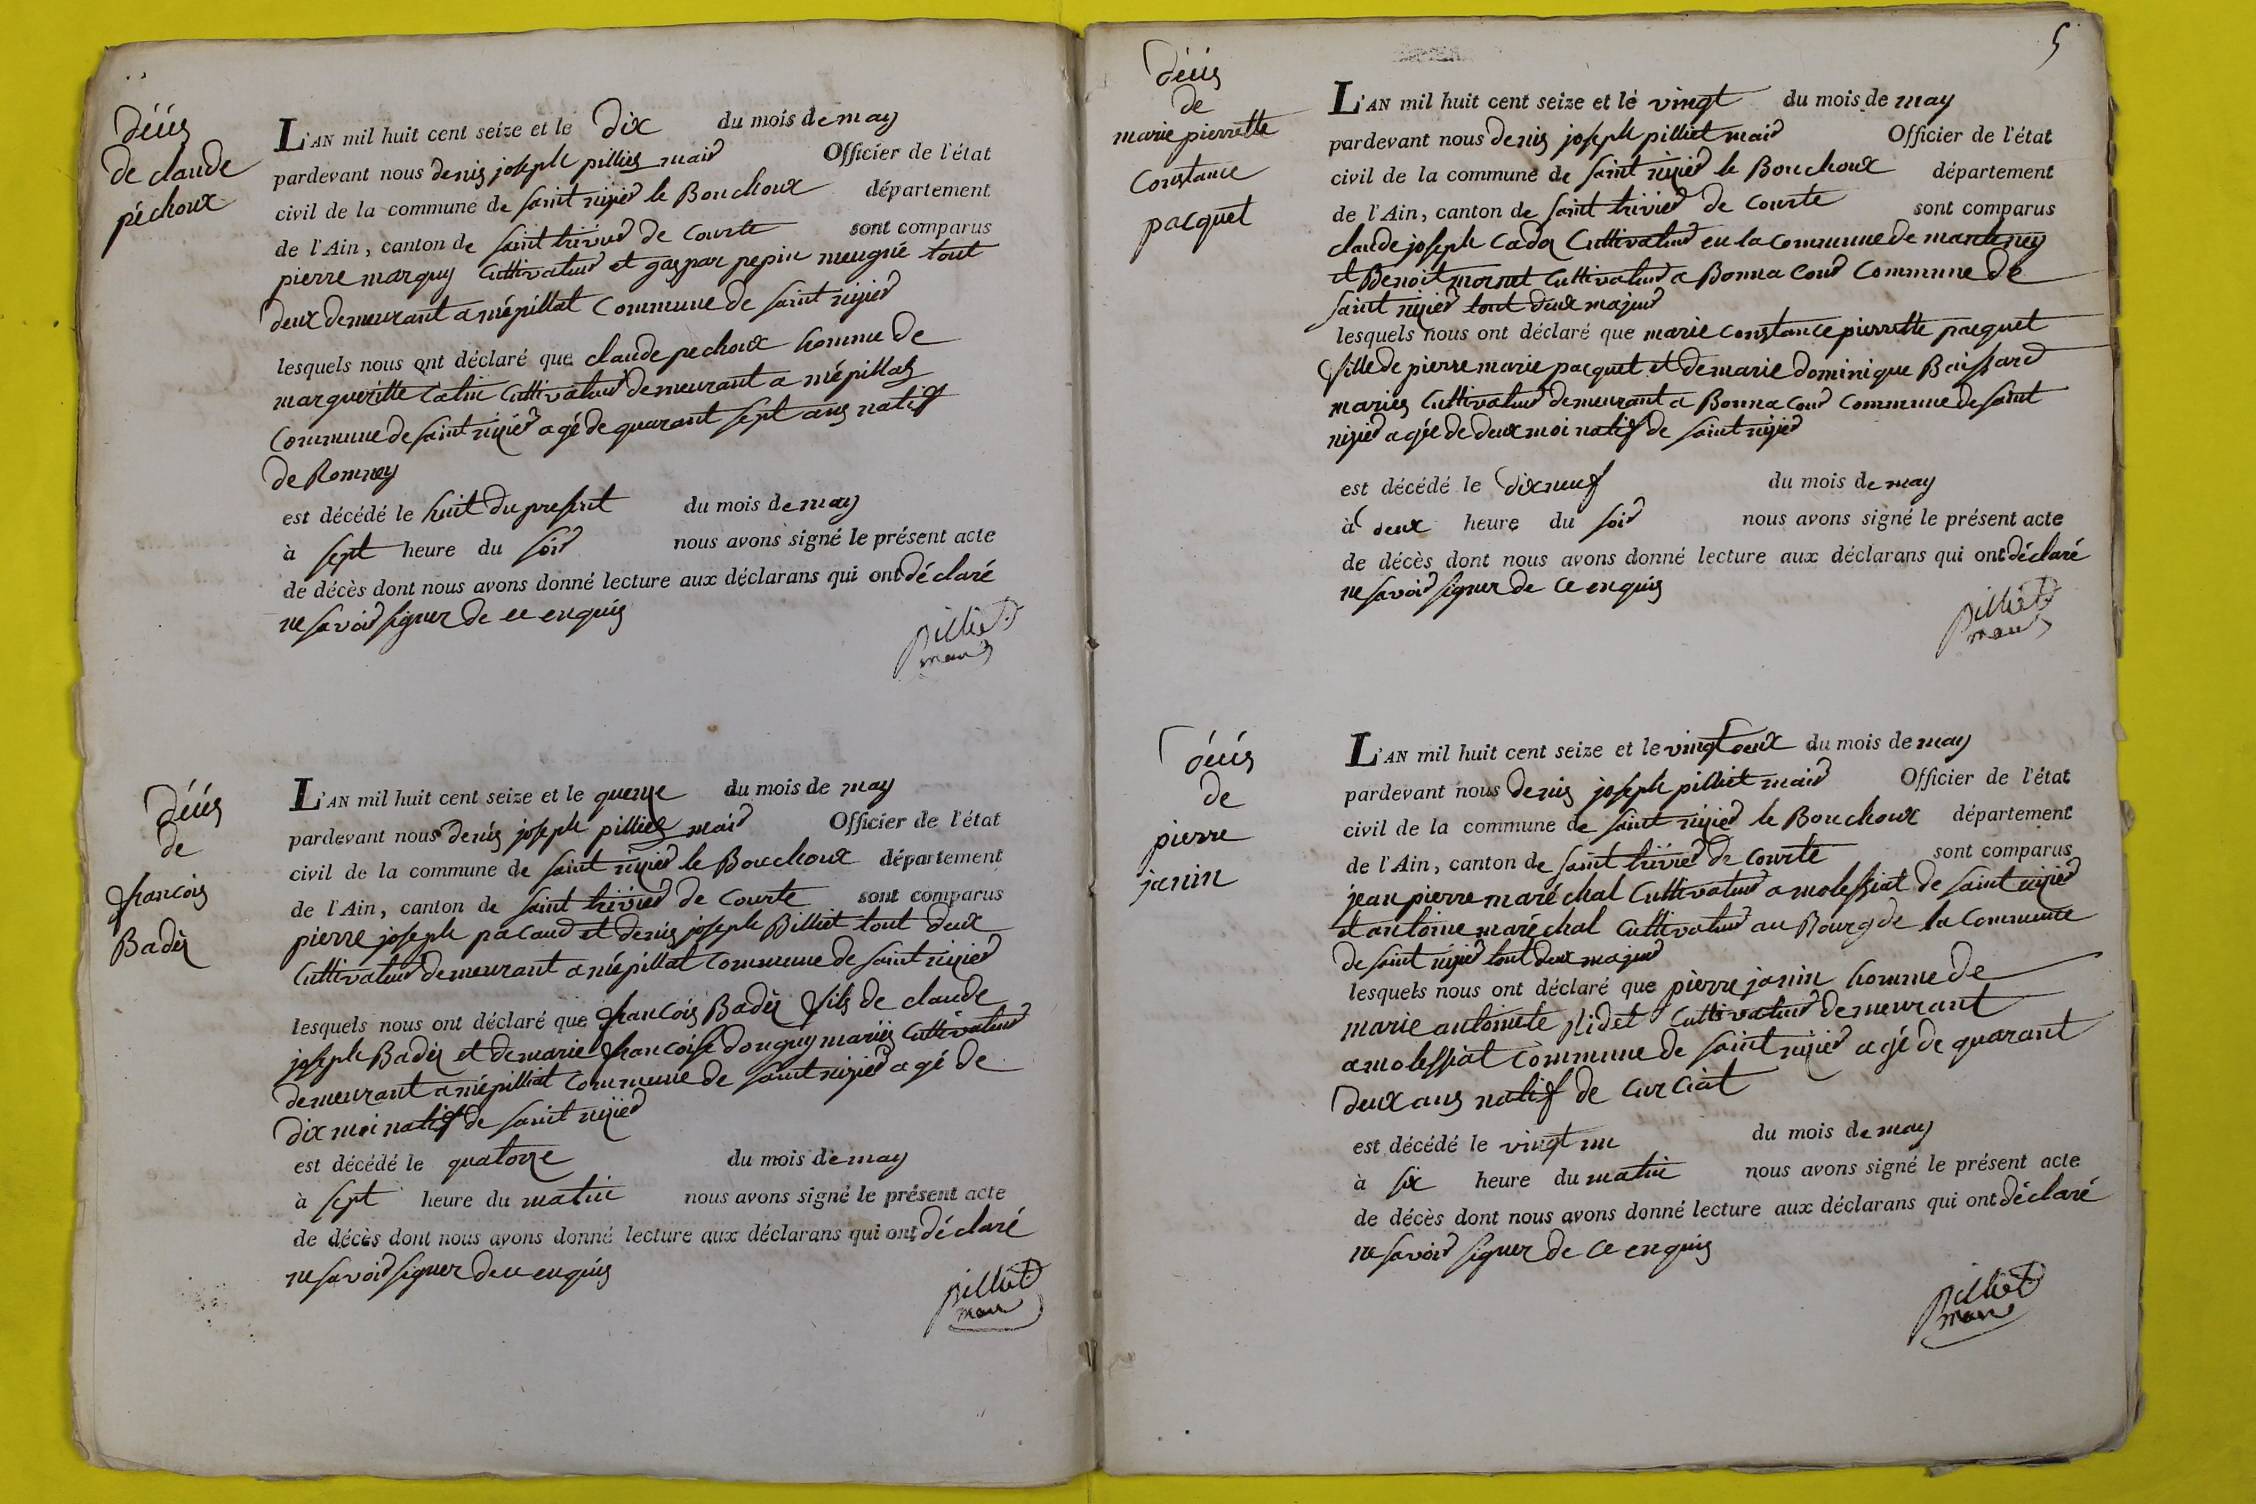 décés
de claude
péchoux
L'AN mil huit cent seize et le dix du mois de may
pardevant nous denis joseph pilliet maire Officier de l'état
civil de la commune de saint nizier le Bouchoux département
de l'Ain, canton de saint trivier de Courte sont comparus
pierre marguy Cultivateur et gaspar pepin meugné tout
deux demeurant a mépillat Commune de saint nizier
lesquels nous ont déclaré que claude pechoux homme de
margueritte Catin Cultivateur demeurant a mépillat
Commune de saint nizier agé de quarant sept ans natif
de Romney
est décédé le huit du present du mois de may
à sept heure du soir nous avons signé le présent acte
de décès dont nous avons donné lecture aux déclarans qui ont déclaré
ne savoir signer de ce enquis
pilliet
maire
décés
de
francois
Badez
L'AN mil huit cent seize et le quenze du mois de may
pardevant nous denis joseph pilliet maire Officier de l'état
civil de la commune de saint nizier le Bouchoux département
de l'Ain, canton de saint trivier de Courte sont comparus
pierre joseph pacaud et denis joseph Billiet tout deux
Cultivateur demeurant a mépillat Commune de saint nizier
lesquels nous ont déclaré que francois Badez fils de claude
joseph Badez et de marie francoise donguy mariés Cultivateur
demeurant a mépilliat Commune de saint nizier agé de
dix moi natif de saint nizier
est décédé le quatorze du mois de may
à sept heure du matin nous avons signé le présent acte
de décès dont nous avons donné lecture aux déclarans qui ont déclaré
ne savoir signer de ce enquis
pilliet
maire
5
décés
de
marie pierrette
Constance
pacquet
L'AN mil huit cent seize et le vingt du mois de may
pardevant nous denis joseph pilliet maire Officier de l'état
civil de la commune de saint nizier le Bouchoux département
de l'Ain, canton de saint trivier de Courte sont comparus
claude joseph Cadoz Cultivateur en la Commune de manteney
et Benoit mornet Cultivateur a Bonna Cour Commune de
saint nizier tout deux majeur
lesquels nous ont déclaré que marie Constance pierrette pacquet
fille de pierre marie pacquet et de marie dominique Boissard
mariés Cultivateur demeurant a Bonna Cour Commune de saint
nizier agée de deux moi natif de saint nizier
est décédé le dixneuf du mois de may
à deux heure du soir nous avons signé le présent acte
de décès dont nous avons donné lecture aux déclarans qui ont déclaré
ne savoir signer de ce enquis
pilliet
maire
décés
de
pierre
janin
L'AN mil huit cent seize et le vingt deux du mois de may
pardevant nous denis joseph pilliet maire Officier de l'état
civil de la commune de saint nizier le Bouchoux département
de l'Ain, canton de saint trivier de Courte sont comparus
jean pierre maréchal Cultivateur a molessiat de saint nizier
et antoine maréchal Cultivateur au Bourg de la Commune
de saint nizier tout deux majeur
lesquels nous ont déclaré que pierre janin homme de
marie antoinete Nidet Cultivateur demeurant
a molessiat Commune de saint nizier agé de quarant
deux ans natif de Curciat
est décédé le vingt un du mois de may
à six heure du matin nous avons signé le présent acte
de décès dont nous avons donné lecture aux déclarans qui ont déclaré
ne savoir signer de ce enquis
pilliet
maire